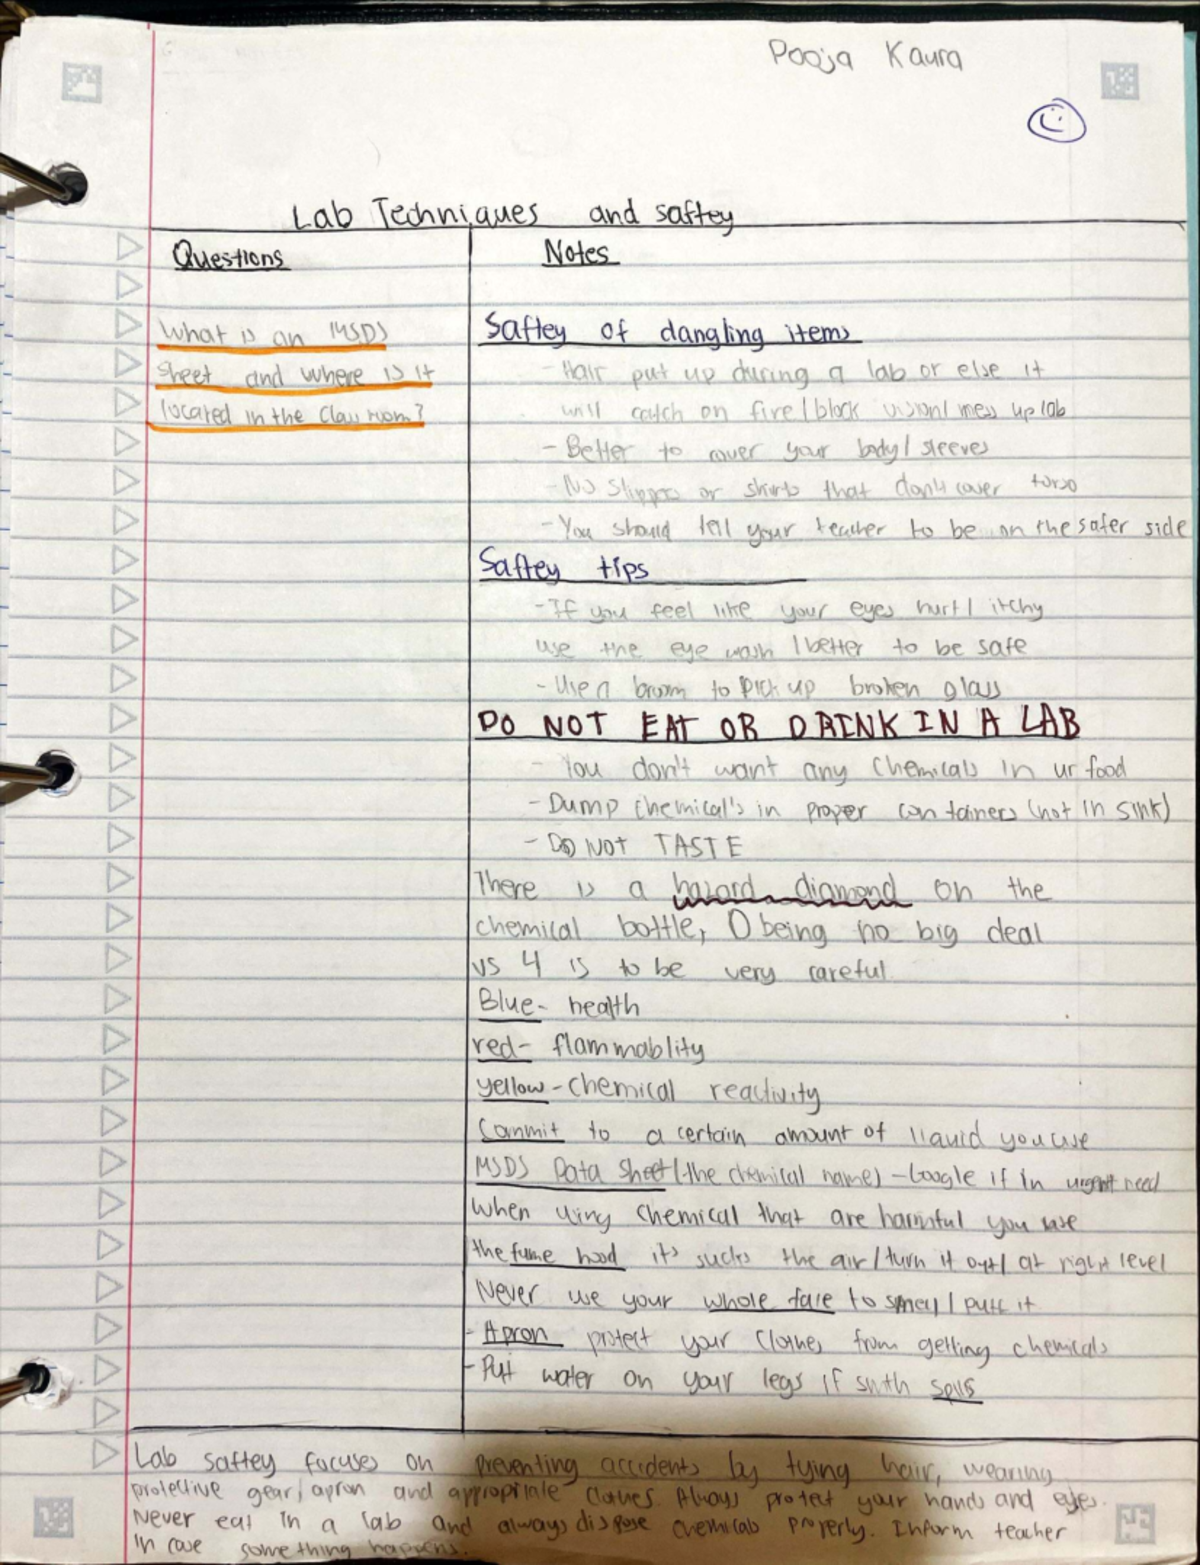 Pooja Kaura
Lab Techniques and saftey
Questions
Notes
What is an MSDS
sheet and where is it
located in the classroom?
Saftey of dangling items
- Hair put up during a lab or else it
will catch on fire/block vision/mess up lab
- Better to cover your body/sleeves
- No slippers or shirts that don't cover torso
- You should tell your teacher to be on the safer side
Saftey tips
- If you feel like your eyes hurt/itchy
use the eye wash/better to be safe
- Use a broom to pick up broken glass
DO NOT EAT OR DRINK IN A LAB
- You don't want any chemicals in ur food
- Dump chemical's in proper containers (not in sink)
- DO NOT TASTE
There is a hazard diamond on the
chemical bottle, 0 being no big deal
vs 4 is to be very careful
Blue- health
red- flammablity
yellow - chemical reactivity
Commit to a certain amount of liquid you use
MSDS Data sheet (the chemical name) - Google if in urgent need
When using chemical that are harmful you use
the fume hood its sucks the air/turn it on/ at right level
Never use your whole face to smell/puff it
- Apron protect your clothes from getting chemicals
- Put water on your legs if smth spills
Lab saftey focuses on preventing accidents by tying hair, wearing
protective gear/apron and appropriate clothes. Always protect your hands and eyes.
Never eat in a lab and always dispose chemicals properly. Inform teacher
in case something happens.